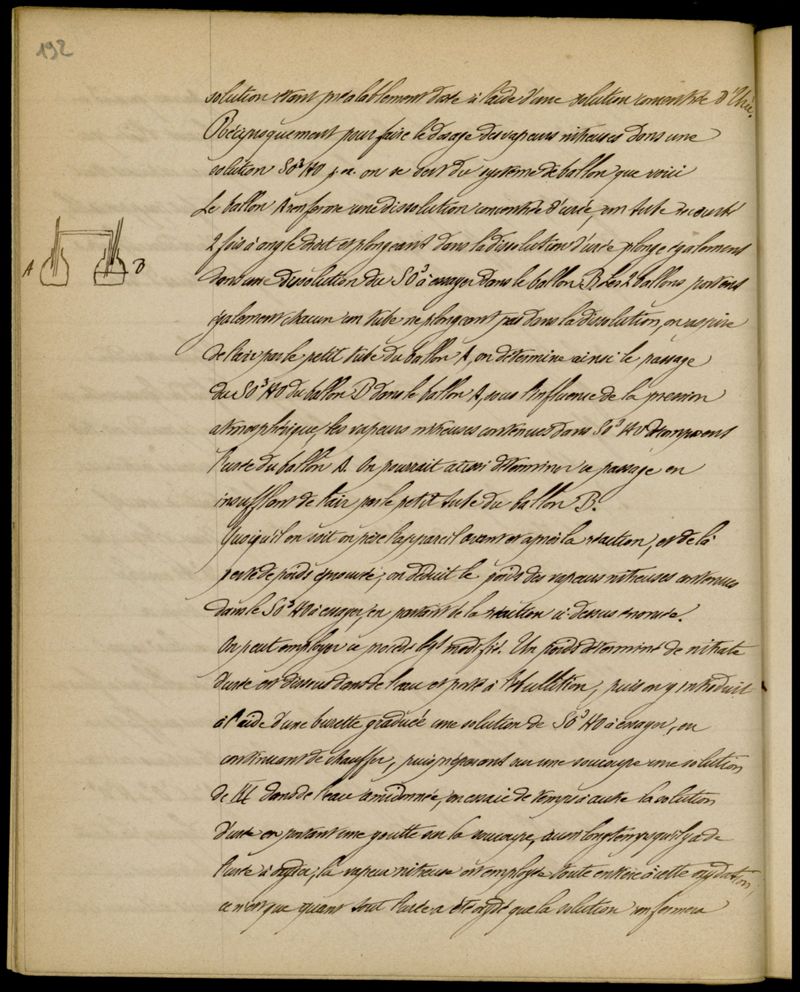 192
solution étant préalablement dosée à l'aide d'une solution concentrée d'Urée.
Réciproquement pour faire le dosage des vapeurs nitreuses dans une
solution SO³HO on se sert du système de ballon que voici
Le ballon A renferme une dissolution concentrée d'urée, un tube recourbé
2 fois à angle droit et plongeant dans la dissolution d'urée plonge également
dans une dissolution de SO³ à essayer dans le ballon B. Les 2 ballons portent
également chacun un tube ne plongeant pas dans la dissolution, on aspire
A B
de l'air par le petit tube du ballon A, on détermine ainsi le passage
du SO³HO du ballon B dans le ballon A, sous l'influence de la pression
atmosphérique, les vapeurs nitreuses contenues dans SO³HO décomposent
l'urée du ballon A. On pourrait aussi déterminer ce passage en
insufflant de l'air par le petit tube du ballon B.
Quoiqu'il en soit on pèse l'appareil avant et après la réaction, et de la
perte de poids éprouvée, on déduit le poids des vapeurs nitreuses contenues
dans le SO³HO à essayer, en partant de la réaction ci-dessus énoncée.
On peut employer ce procédé modifié. Un poids déterminé de nitrate
d'urée est dissout dans de l'eau et porté à l'ébullition, puis on y introduit
à l'aide d'une burette graduée une solution de SO³HO à essayer, en
continuant de chauffer, puis préparant sur une soucoupe une solution
de dans de l'eau amidonnée, on essaie de temps à autre la solution
d'urée en portant une goutte sur la soucoupe, aussi longtemps qu'il y a de
l'urée à oxyder, la vapeur nitreuse est employée toute entière à cette oxydation;
ce n'est que quant tout l'urée a été oxydé que la solution renfermera